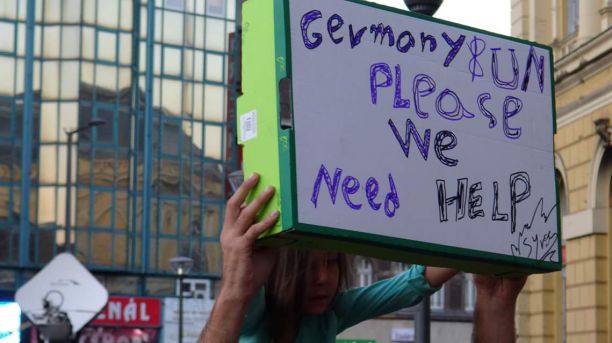 Germany & UN
PLEase
We
Need HELP
NÁL